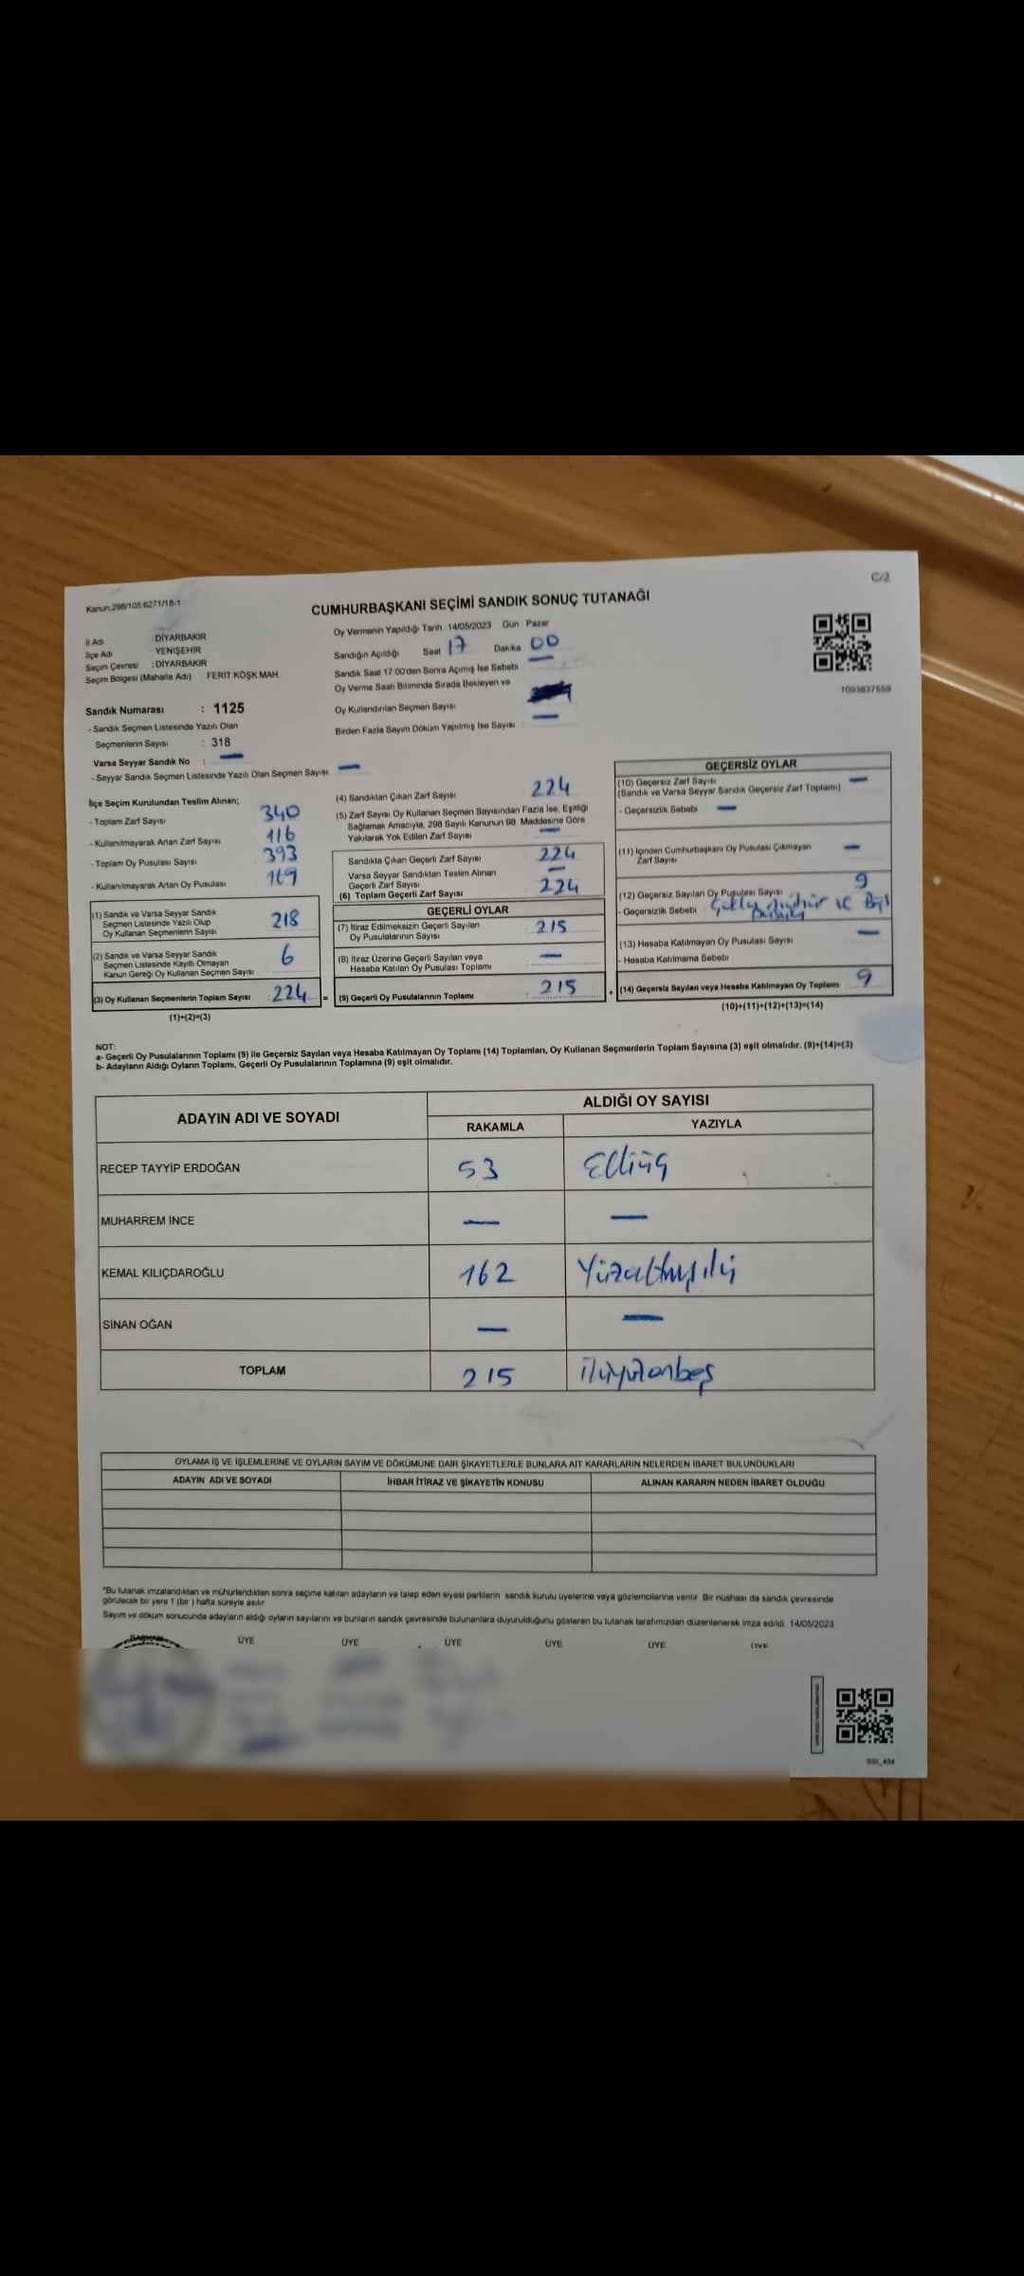 C/2
Kanun:298/105.6271/18-1
CUMHURBAŞKANI SEÇİMİ SANDIK SONUÇ TUTANAĞI
İl Adı DİYARBAKIR
İlçe Adı YENİŞEHİR
Seçim Çevresi : DİYARBAKIR
Seçim Bölgesi (Mahalle Adı) FERİT KÖŞK MAH.
Sandık Numarası : 1125
- Sandık Seçmen Listesinde Yazılı Olan
Seçmenlerin Sayısı : 318
Varsa Seyyar Sandık No : —
- Seyyar Sandık Seçmen Listesinde Yazılı Olan Seçmen Sayısı —
Oy Vermenin Yapıldığı Tarih 14/05/2023 Gün Pazar
Sandığın Açıldığı Saat 17 Dakika 00
Sandık Saat 17.00'den Sonra Açılmış İse Sebebi —
Oy Verme Saati Bitiminde Sırada Bekleyen ve
Oy Kullandırılan Seçmen Sayısı
Birden Fazla Sayım Döküm Yapılmış İse Sayısı —
1093837559
İlçe Seçim Kurulundan Teslim Alınan;
- Toplam Zarf Sayısı 340
- Kullanılmayarak Artan Zarf Sayısı 116
- Toplam Oy Pusulası Sayısı 393
- Kullanılmayarak Artan Oy Pusulası 169
(1) Sandık ve Varsa Seyyar Sandık
Seçmen Listesinde Yazılı Olup
Oy Kullanan Seçmenlerin Sayısı 218
(2) Sandık ve Varsa Seyyar Sandık
Seçmen Listesinde Kayıtlı Olmayan
Kanun Gereği Oy Kullanan Seçmen Sayısı 6
(3) Oy Kullanan Seçmenlerin Toplam Sayısı 224 =
(1)+(2)=(3)
(4) Sandıktan Çıkan Zarf Sayısı 224
(5) Zarf Sayısı Oy Kullanan Seçmen Sayısından Fazla İse, Eşitliği
Sağlamak Amacıyla, 298 Sayılı Kanunun 98. Maddesine Göre
Yakılarak Yok Edilen Zarf Sayısı —
Sandıkta Çıkan Geçerli Zarf Sayısı 224
Varsa Seyyar Sandıktan Teslim Alınan
Geçerli Zarf Sayısı —
(6) Toplam Geçerli Zarf Sayısı 224
GEÇERLİ OYLAR
(7) İtiraz Edilmeksizin Geçerli Sayılan
Oy Pusulalarının Sayısı 215
(8) İtiraz Üzerine Geçerli Sayılan veya
Hesaba Katılan Oy Pusulası Toplamı —
(9) Geçerli Oy Pusulalarının Toplamı 215 +
GEÇERSİZ OYLAR
(10) Geçersiz Zarf Sayısı —
(Sandık ve Varsa Seyyar Sandık Geçersiz Zarf Toplamı)
- Geçersizlik Sebebi —
(11) İçinden Cumhurbaşkanı Oy Pusulası Çıkmayan
Zarf Sayısı —
(12) Geçersiz Sayılan Oy Pusulası Sayısı 9
- Geçersizlik Sebebi
(13) Hesaba Katılmayan Oy Pusulası Sayısı —
- Hesaba Katılmama Sebebi
(14) Geçersiz Sayılan veya Hesaba Katılmayan Oy Toplamı 9
(10)+(11)+(12)+(13)=(14)
NOT:
a- Geçerli Oy Pusulalarının Toplamı (9) ile Geçersiz Sayılan veya Hesaba Katılmayan Oy Toplamı (14) Toplamları, Oy Kullanan Seçmenlerin Toplam Sayısına (3) eşit olmalıdır. (9)+(14)=(3)
b- Adayların Aldığı Oyların Toplamı, Geçerli Oy Pusulalarının Toplamına (9) eşit olmalıdır.
ADAYIN ADI VE SOYADI ALDIĞI OY SAYISI
RAKAMLA YAZIYLA
RECEP TAYYİP ERDOĞAN 53 Elliüç
MUHARREM İNCE — —
KEMAL KILIÇDAROĞLU 162 Yüzaltmışiki
SİNAN OĞAN — —
TOPLAM 215 ikiyüzonbeş
OYLAMA İŞ VE İŞLEMLERİNE VE OYLARIN SAYIM VE DÖKÜMÜNE DAİR ŞİKAYETLERLE BUNLARA AİT KARARLARIN NELERDEN İBARET BULUNDUKLARI
ADAYIN ADI VE SOYADI İHBAR İTİRAZ VE ŞİKAYETİN KONUSU ALINAN KARARIN NEDEN İBARET OLDUĞU
*Bu tutanak imzalandıktan ve mühürlendikten sonra seçime katılan adayların ve talep eden siyasi partilerin sandık kurulu üyelerine veya gözlemcilerine verilir. Bir nüshası da sandık çevresinde
görülecek bir yere 1 (bir) hafta süreyle asılır.
Sayım ve döküm sonucunda adayların aldığı oyların sayılarını ve bunların sandık çevresinde bulunanlara duyurulduğunu gösteren bu tutanak tarafımızdan düzenlenerek imza edildi. 14/05/2023
ÜYE ÜYE ÜYE ÜYE ÜYE ÜYE